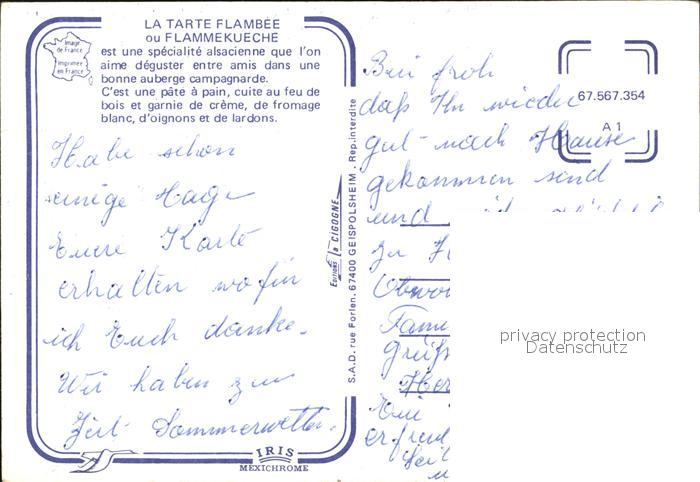 LA TARTE FLAMBÉE
ou FLAMMEKUECHE
est une spécialité alsacienne que l'on
aime déguster entre amis dans une
bonne auberge campagnarde.
C'est une pâte à pain, cuite au feu de
bois et garnie de crème, de fromage
blanc, d'oignons et de lardons.
Image
de France
Imprimée
en France
Habe schon
einige Tage
Eure Karte
erhalten wofür
ich Euch danke.
Wir haben zur
Zeit Sommerwetter.
IRIS
MEXICHROME
S.A.D. rue Forlen. 67400 GEISPOLSHEIM. Rep. interdite
Editions la CIGOGNE
67.567.354
A 1
Bin froh
daß Ihr wieder
gut nach Hause
gekommen sind
und
zu
privacy protection
Datenschutz